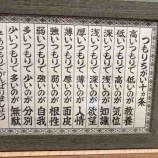 つもりちがい十ヶ条
高いつもりで低いのが教養
低いつもりで高いのが気位
深いつもりで浅いのが知識
浅いつもりで深いのが欲望
厚いつもりで薄いのが人情
薄いつもりで厚いのが面皮
強いつもりで弱いのが根性
弱いつもりで強いのが自我
多いつもりで少いのが分別
少いつもりで多いのが無駄